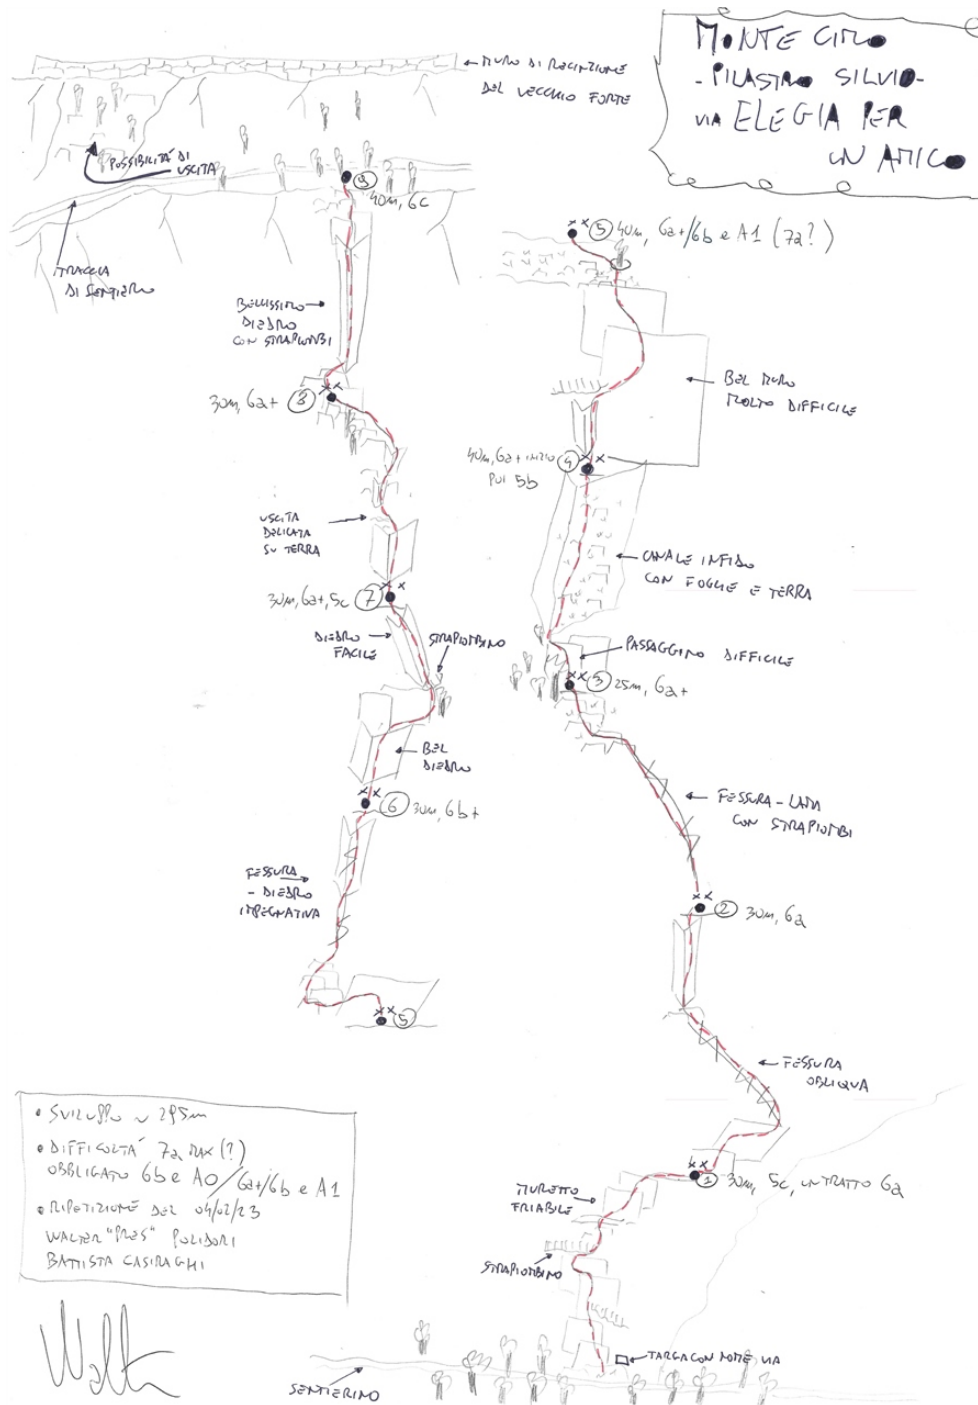 MONTE CIMO
- PILASTRO SILVIO -
VIA ELEGIA PER
UN AMICO
MURO DI RECINZIONE
DEL VECCHIO FORTE
POSSIBILITÁ DI
USCITA
9
40m, 6c
TRACCIA
DI SENTIERO
BELLISSIMO
DIEDRO
CON STRAPIOMBI
30m, 6a+ 8
USCITA
DELICATA
SU TERRA
30m, 6a+, 5c 7
DIEDRO
FACILE
STRAPIOMBINO
BEL
DIEDRO
6 30m, 6b+
FESSURA
- DIEDRO
IMPEGNATIVA
5
5 40m, 6a+/6b e A1 (7a?)
BEL MURO
MOLTO DIFFICILE
40m, 6a+ INIZIO 4
POI 5b
CANALE INFIDO
CON FOGLIE E TERRA
PASSAGGINO DIFFICILE
3 25m, 6a+
FESSURA - LAMA
CON STRAPIOMBI
2 30m, 6a
FESSURA
OBLIQUA
1 30m, 5c, UN TRATTO 6a
MURETTO
FRIABILE
STRAPIOMBINO
TARGA CON NOME VIA
SENTIERINO
• SVILUPPO ~ 295m
• DIFFICOLTÁ 7a MAX (?)
OBBLIGATO 6b e A0/6a+/6b e A1
• RIPETIZIONE DEL 04/02/23
WALTER "PRES" POLIDORI
BATTISTA CASIRAGHI